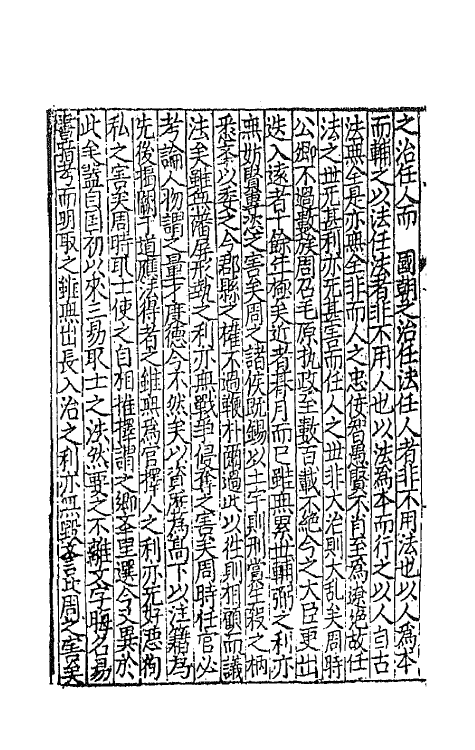 之治任人而　國朝之治任法任人者非不用法也以人為本
而輔之以法任法者非不用人也以法為本而行之以人自古
法無全是亦無全非而人之忠佞智愚賢不肖至為遼絶故任
法之世无甚利亦无甚害而任人之世非大治則大乱矣周時
公卿不過數族周召毛原执政至數百載不絶今之大臣更出
迭入遠者十餘年極矣近者朞月而已雖無累世輔弼之利亦
無妨賢畜恣之害矣周之諸侯既錫以土宇則刑賞生殺之柄
悉舉以委之今郡縣之權不過鞭朴爾過此以徃則相顧而議
法矣雖無藩屏形勢之利亦無戰爭侵奪之害矣周時任官必
考論人物謂之量才度德今不然矣以資歷為高下以注籍為
先後揭闕于道應格得者之雖無為官擇人之利亦无好惡徇
私之害矣周時取士使之自相推擇謂之鄉舉里選今又異於
此矣盖自国初以來三易取士之法然要之不離文字晦名易
書暗考而明取之雖無出長入治之利亦無毀譽朋周之害矣